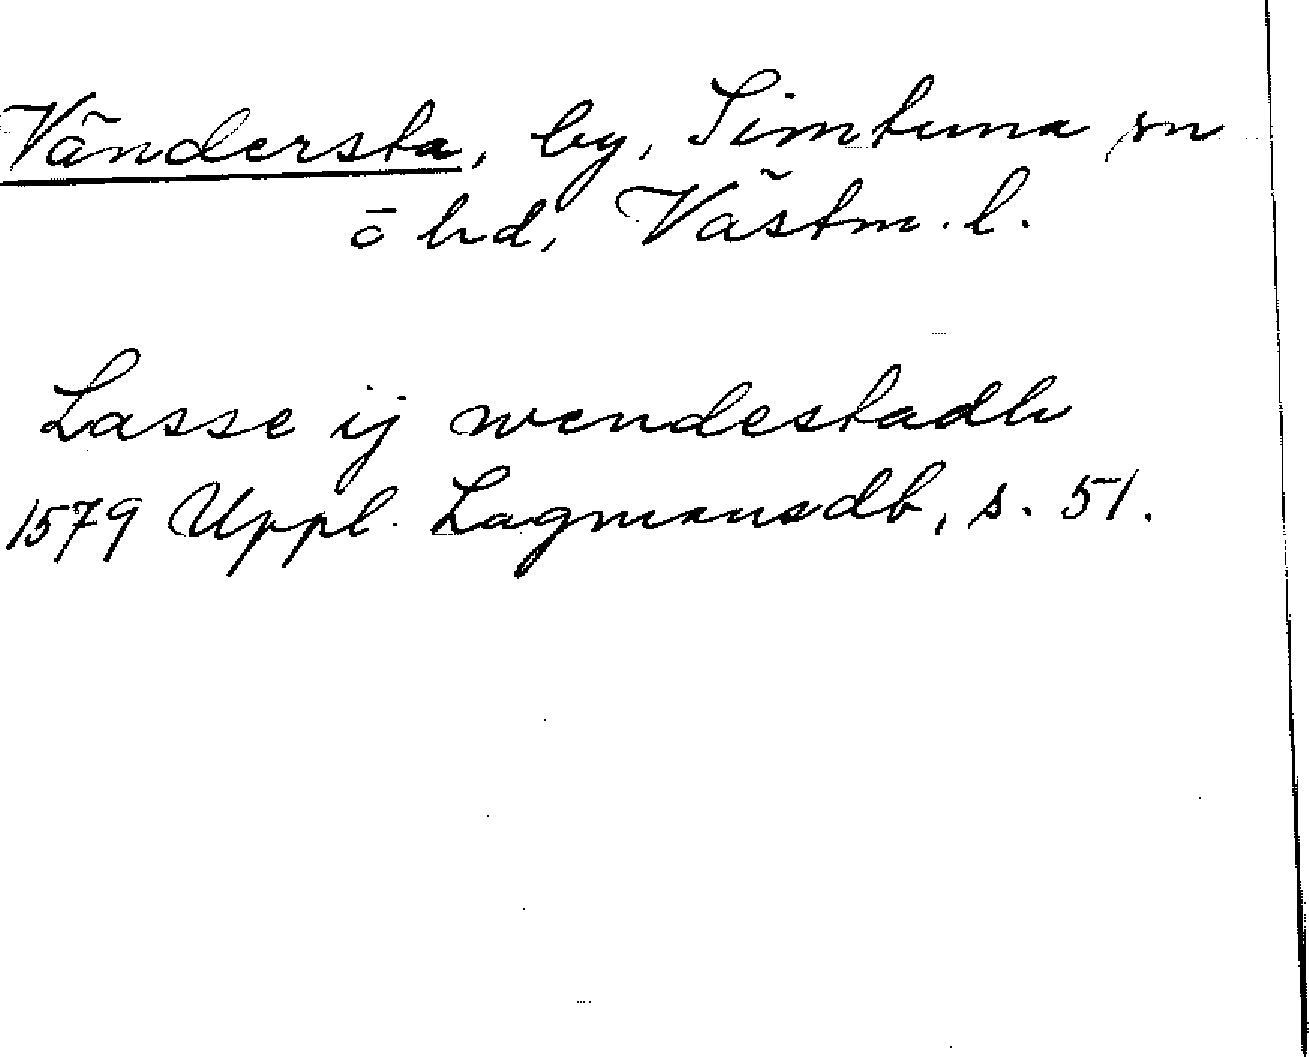 Vändersta, by, Simtuna sn
o hd, Västm. l.
Lasse ij wendestadh
1579 Uppl. Lagmansdb, s. 51.